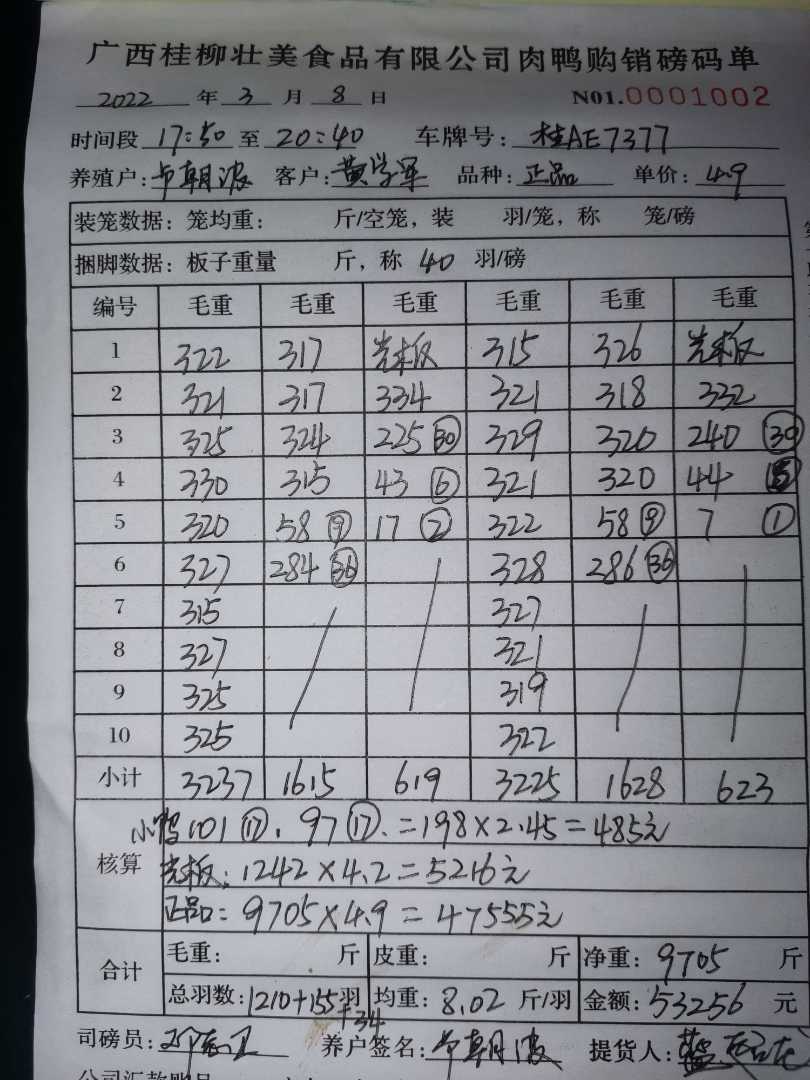 广西桂柳壮美食品有限公司肉鸭购销磅码单
2022 年 3 月 8 日 N01.0001002
时间段 17:50 至 20:40 车牌号: 桂AE7377
养殖户: 韦朝波 客户: 黄学军 品种: 正品 单价: 4.9
装笼数据: 笼均重: 斤/空笼, 装 羽/笼, 称 笼/磅
捆脚数据: 板子重量 斤, 称 40 羽/磅
编号 毛重 毛重 毛重 毛重 毛重 毛重
1 322 317 光板 315 326 光板
2 321 317 334 321 318 332
3 325 324 225 30 329 320 240 30
4 330 315 43 6 321 320 44
5 320 58 9 17 2 322 58 9 7 1
6 327 284 36 328 286 36
7 315 327
8 327 321
9 325 319
10 325 322
小计 3237 1615 619 3225 1628 623
小鸭 101 17. 97 17. =198×2.45=485元
核算 光板: 1242×4.2=5216元
正品: 9705×4.9=47555元
合计 毛重: 斤 皮重: 斤 净重: 9705 斤
总羽数: 1210+155羽 均重: 8.02 斤/羽 金额: 53256 元
+34
司磅员: 养户签名: 韦朝波 提货人: